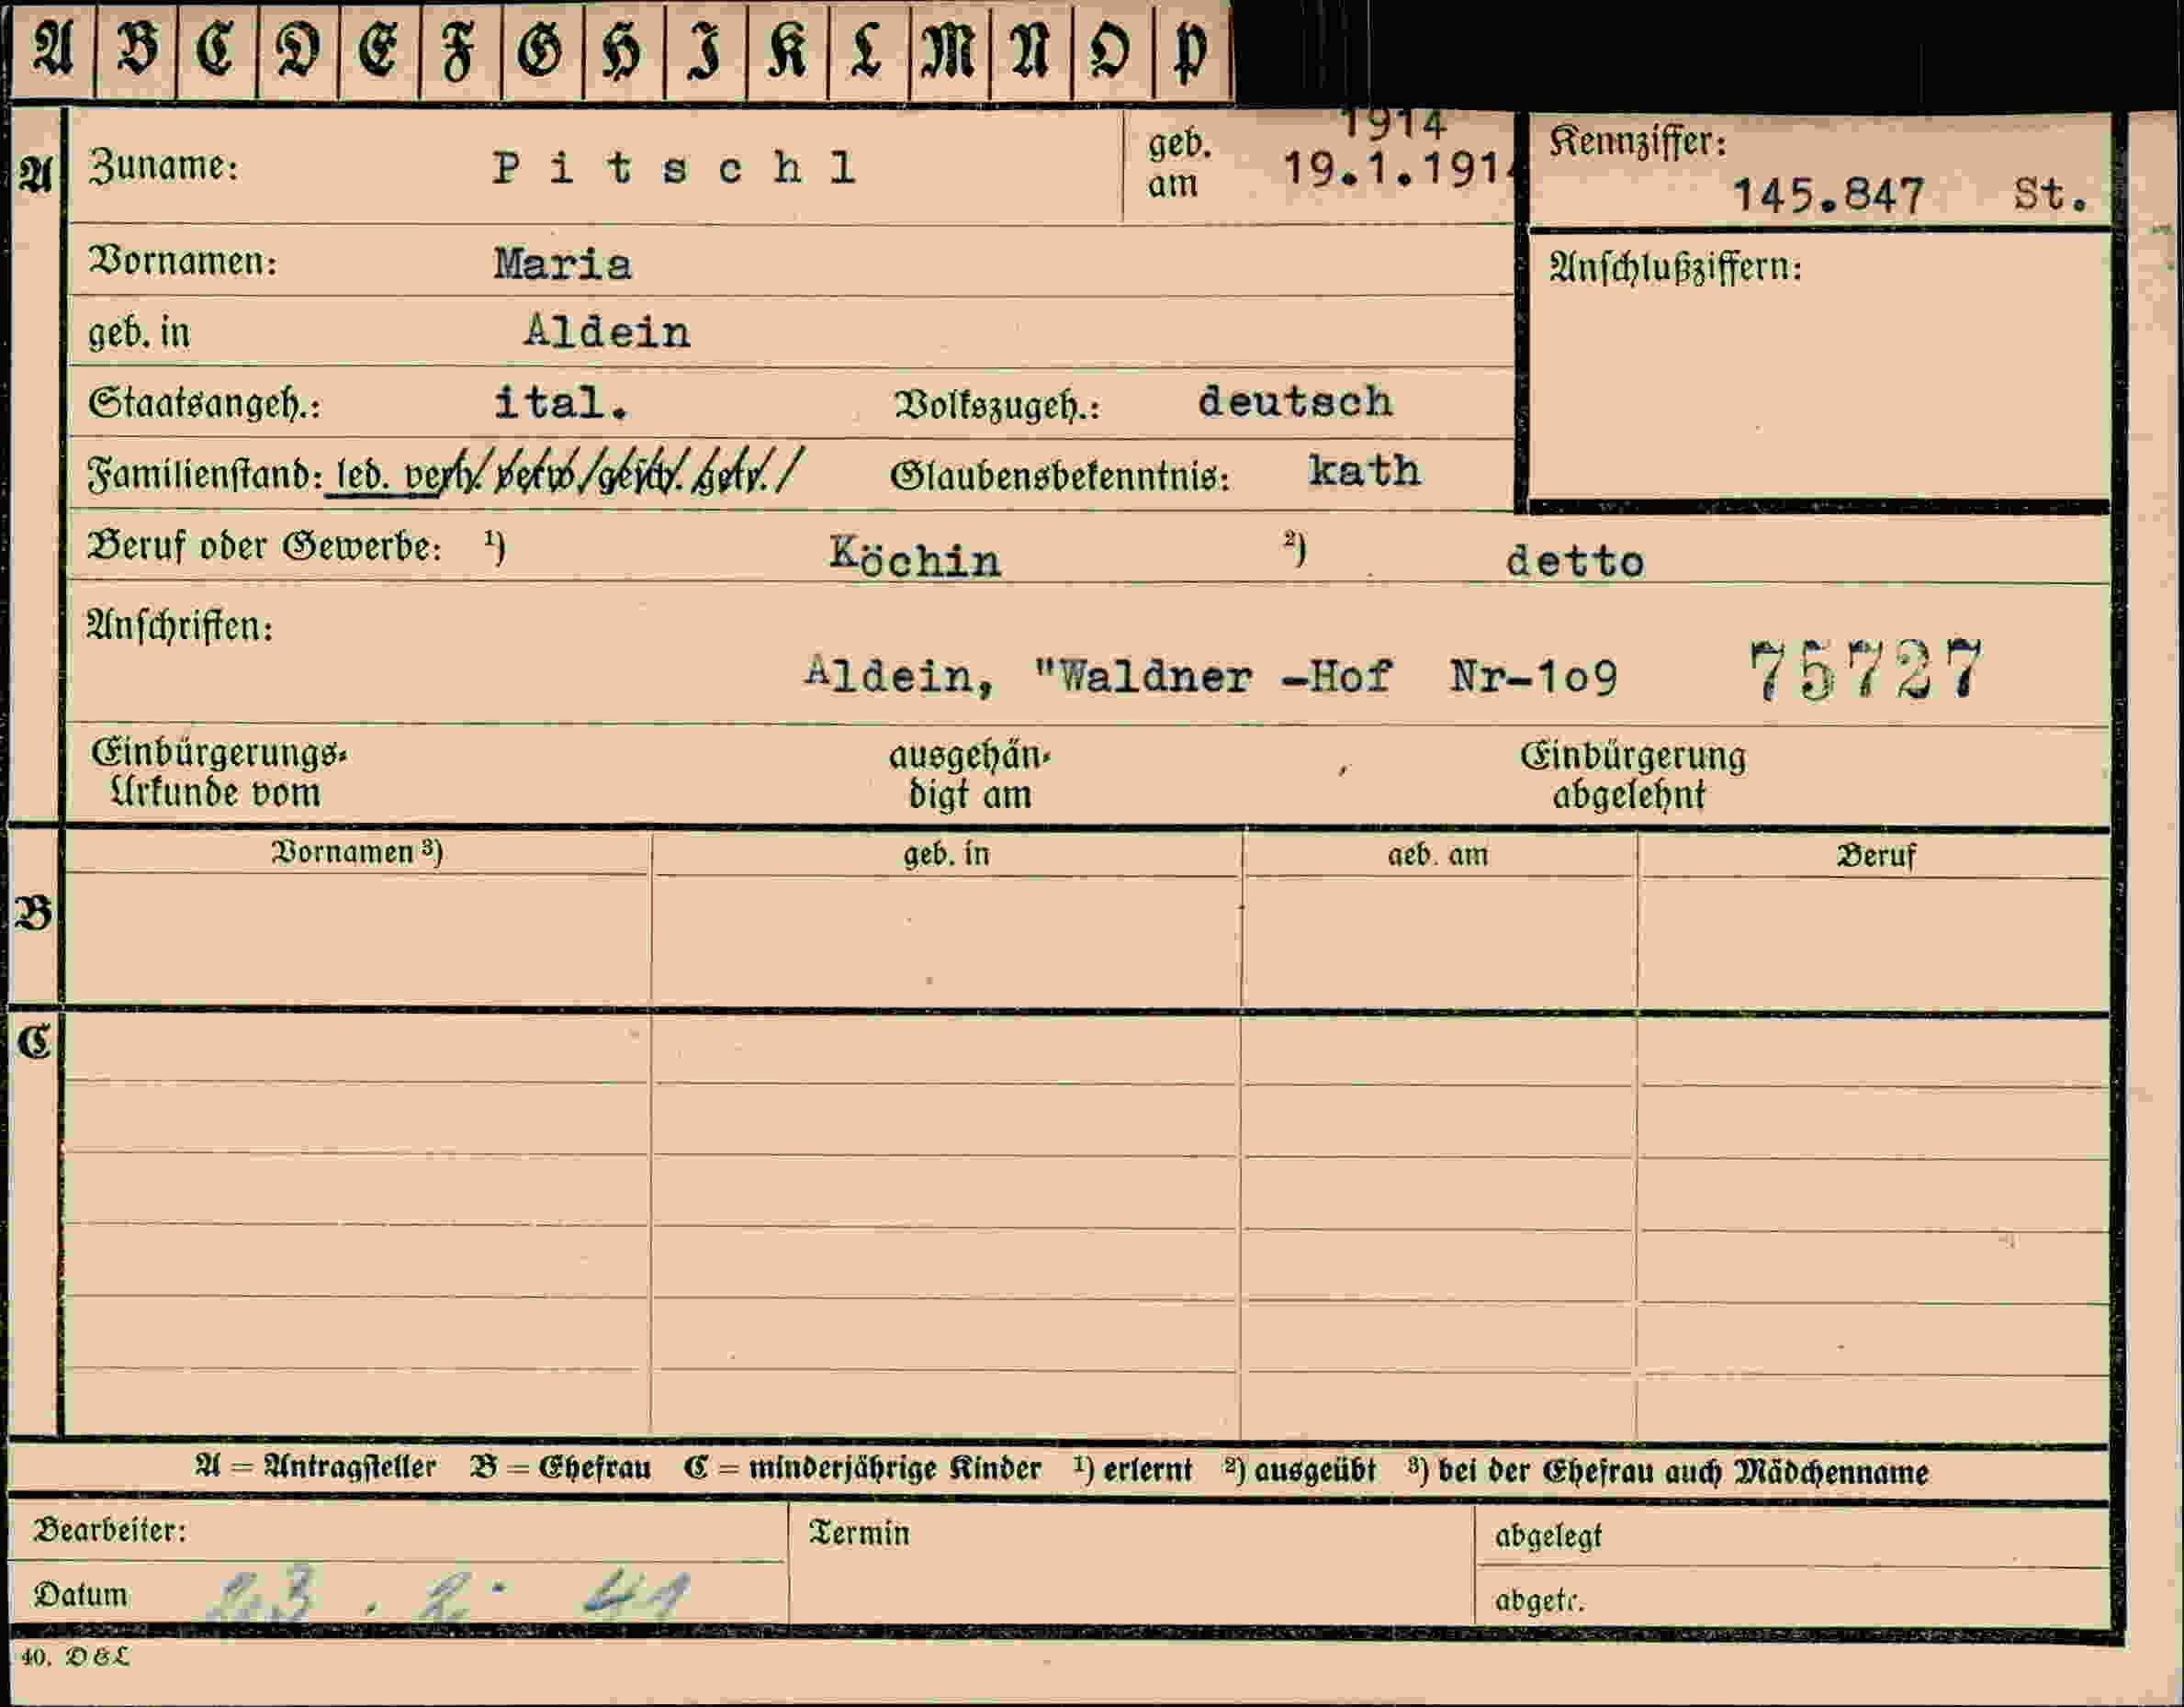 A B C D E F G H I K L M N O P
1914
A Zuname: Pitschl geb. am 19.1.1914 Kennziffer: 145.847 St.
Vornamen: Maria Anschlußziffern:
geb. in Aldein
Staatsangeh.: ital. Volkszugeh.: deutsch
Familienstand: led. verh. verw. gesch. getr. Glaubensbekenntnis: kath
Beruf oder Gewerbe: ¹) Köchin ²) detto
Anschriften:
Aldein, "Waldner -Hof Nr-1o9 75727
Einbürgerungs- ausgehän- Einbürgerung
Urkunde vom digt am abgelehnt
Vornamen ³) geb. in geb. am Beruf
B
C
A = Antragsteller B = Ehefrau C = minderjährige Kinder ¹) erlernt ²) ausgeübt ³) bei der Ehefrau auch Mädchenname
Bearbeiter: Termin abgelegt
Datum 23. 2. 41 abgetr.
40. D&L